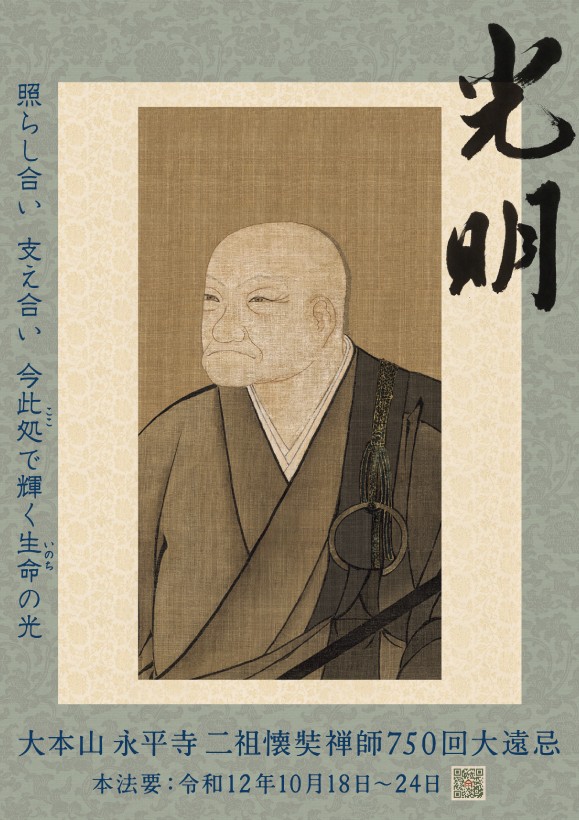 光明
照らし合い 支え合い 今此処で輝く生命の光
ここ
いのち
大本山 永平寺 二祖懐奘禅師750回大遠忌
本法要：令和12年10月18日〜24日